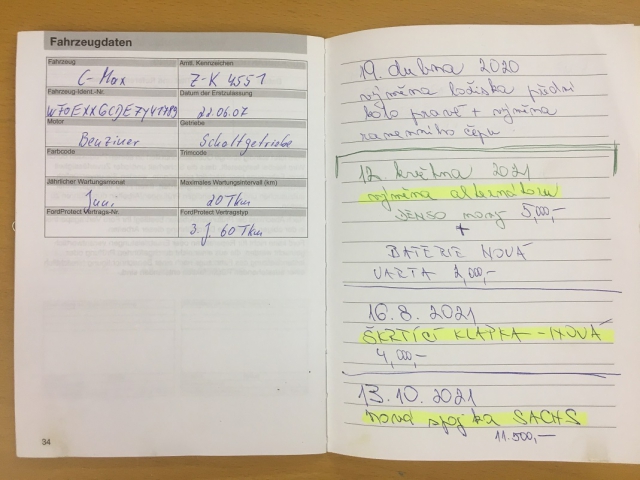 Fahrzeugdaten
Fahrzeug
C-Max
Amtl. Kennzeichen
Z-K 4551
Fahrzeug-Ident.-Nr.
Datum der Erstzulassung
22.06.07
Motor
Benziner
Getriebe
Schaltgetriebe
Farbcode
Trimcode
Jährlicher Wartungsmonat
Juni
Maximales Wartungsintervall (km)
20 Tkm
FordProtect Vertrags-Nr.
FordProtect Vertragstyp
3. J. 60 Tkm
34
19. dubna 2020
výměna ložiska přední
kolo pravé + výměna
ramenního čepu
12. května 2021
výměna alternátoru
DENSO nový 5,000,-
+
BATERIE NOVÁ
VARTA 2,000,-
16.8.2021
ŠKRTÍCÍ KLAPKA - NOVÁ
4,000,-
13.10.2021
nová spojka SACHS
11.500,-